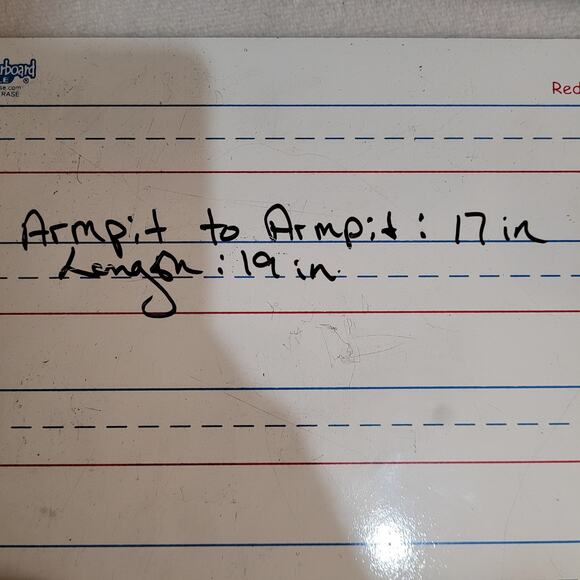 rboard
LE ®
se.com
RASE
Red
Armpit to Armpit: 17 in
Length: 19 in.